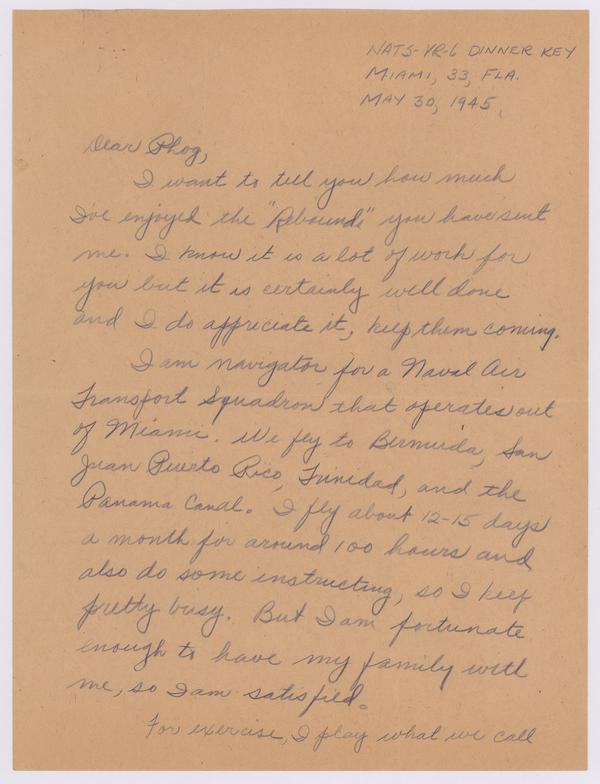 NATS-VR-6 DINNER KEY
MIAMI, 33, FLA.
MAY 30, 1945,
Dear Phog,
I want to tell you how much
I've enjoyed the "Rebounds" you have sent
me. I know it is a lot of work for
you but it is certainly well done
and I do appreciate it, keep them coming.
I am navigator for a Naval Air
Transport Squadron that operates out
of Miami. We fly to Bermuda, San
Juan Puerto Rico, Trinidad, and the
Panama Canal. I fly about 12-15 days
a month for around 100 hours and
also do some instructing, so I keep
pretty busy. But I am fortunate
enough to have my family with
me, so I am satisfied.
For exercise, I play what we call